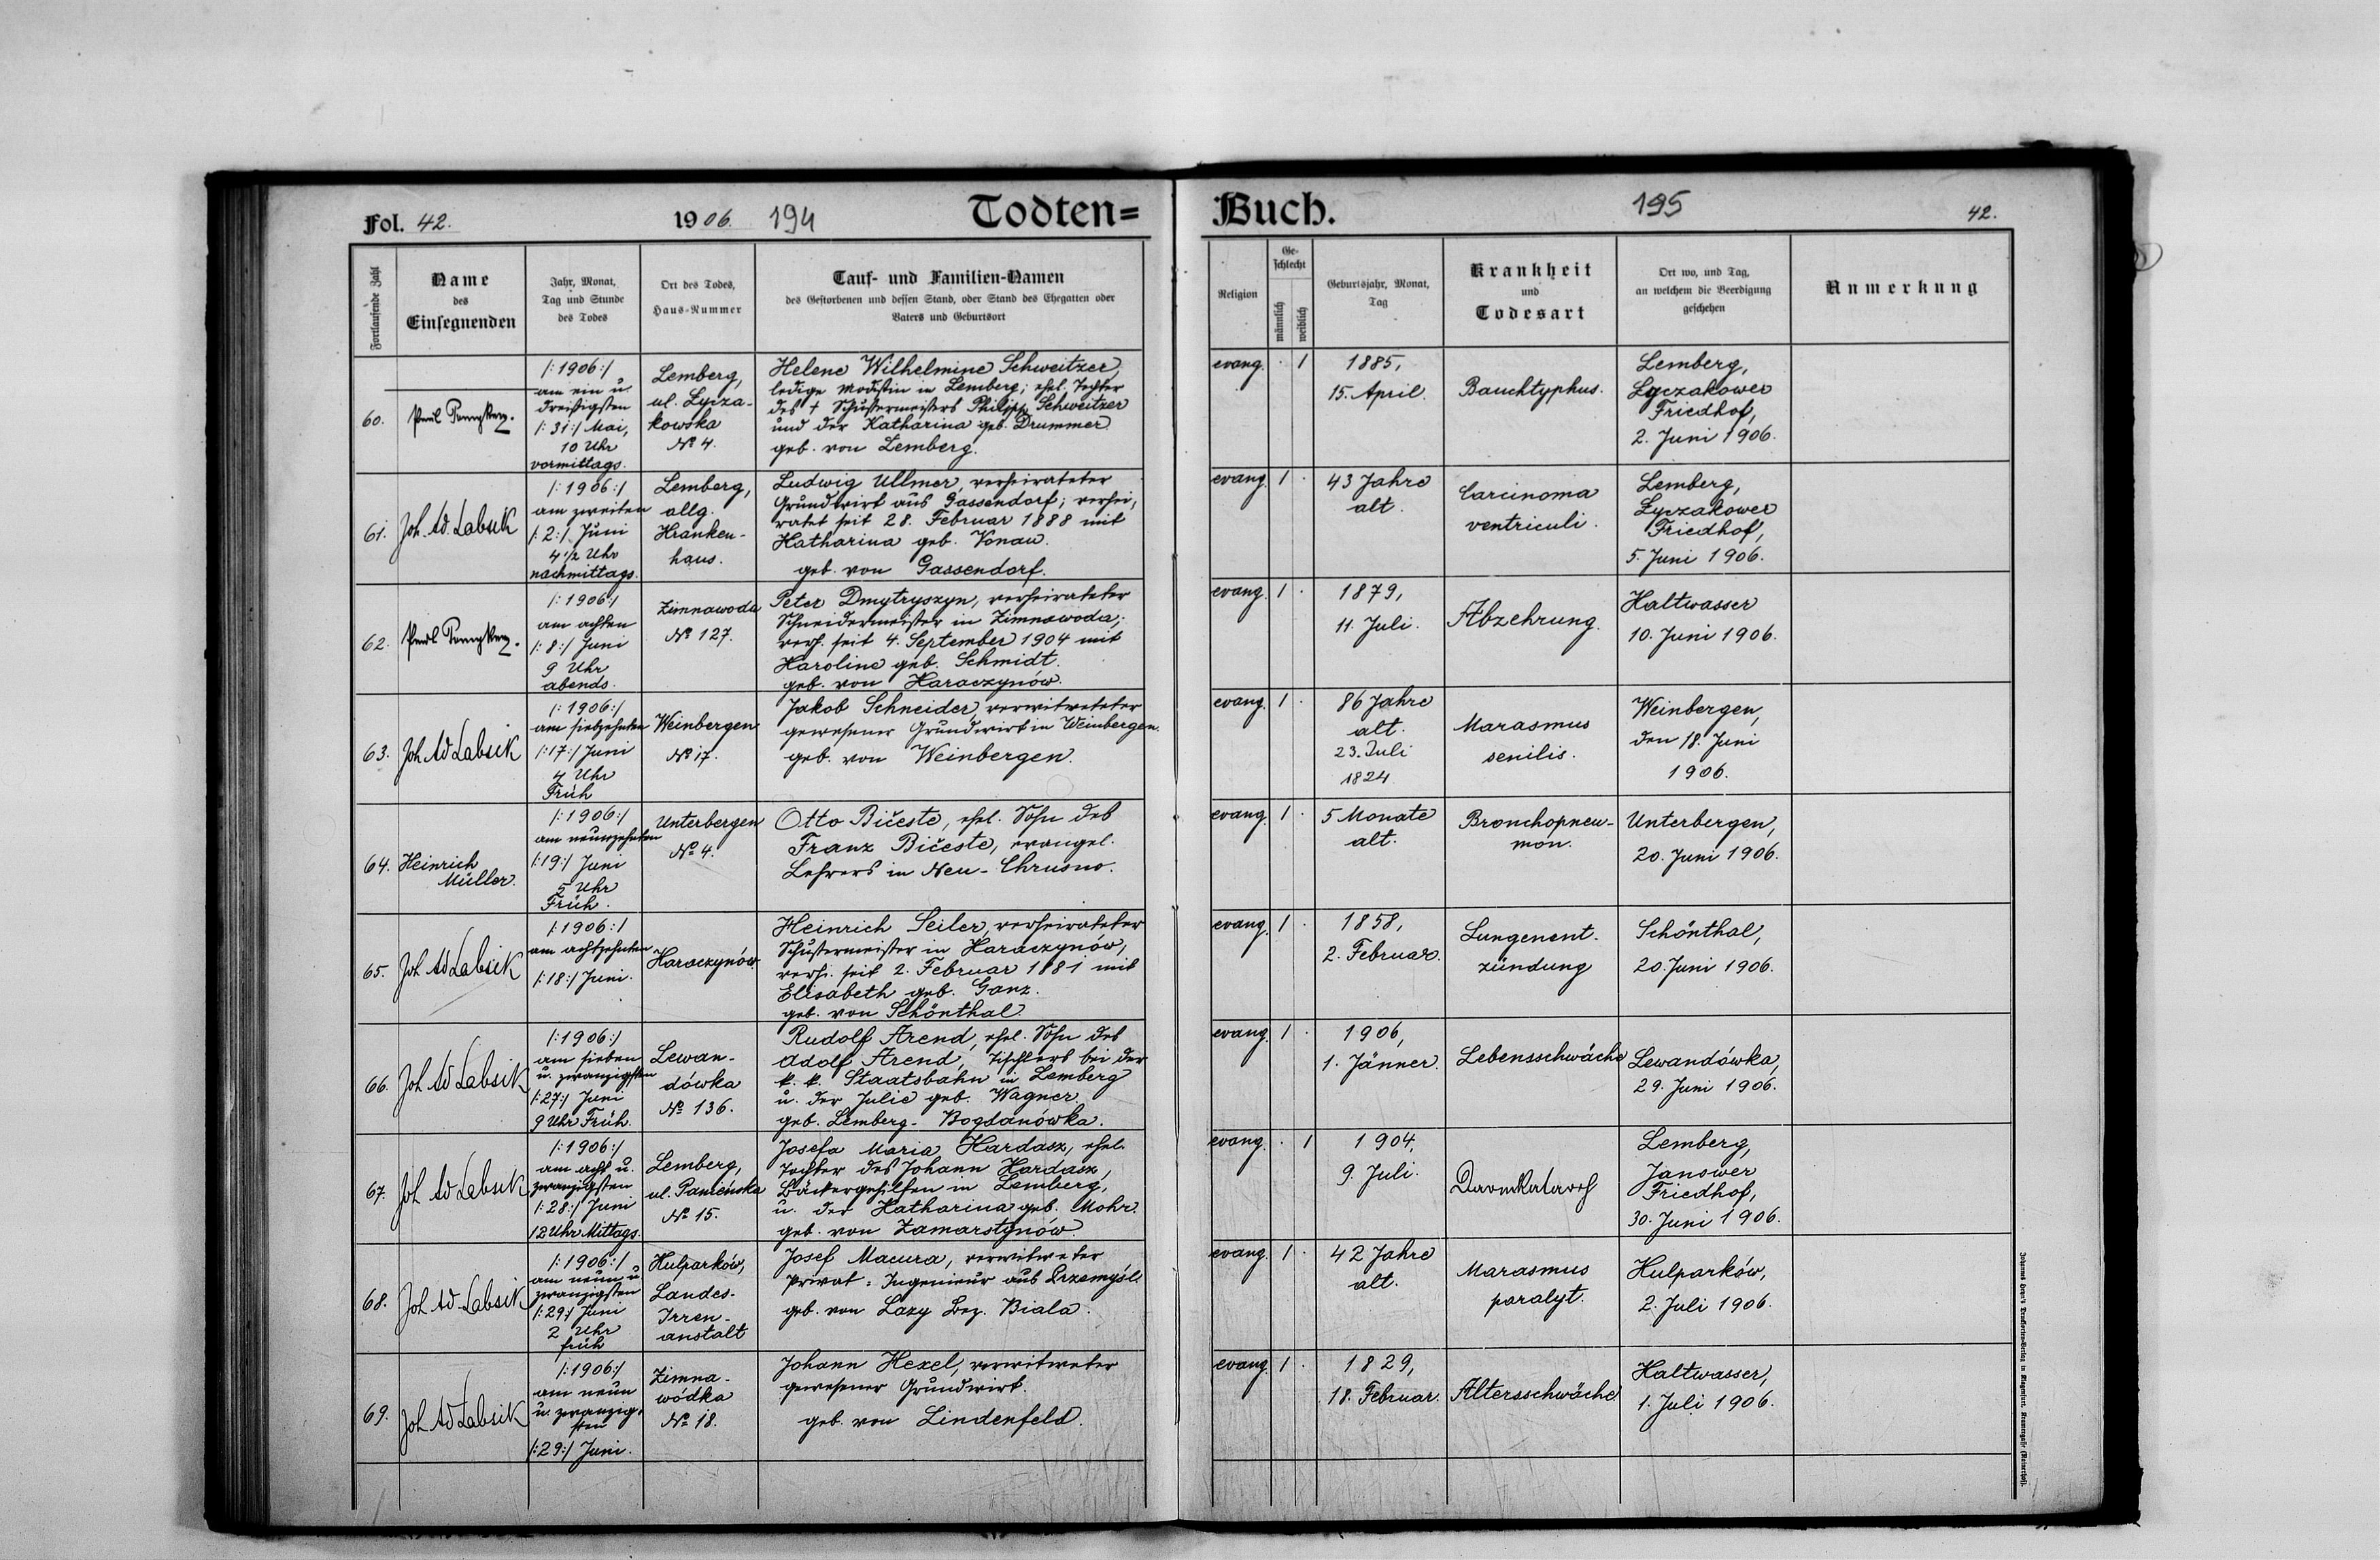 Fol. 42.
1906. 194
Todten=
Buch.
195
42.
Fortlaufende Zahl
Name
des
Einsegnenden
Jahr, Monat,
Tag und Stunde
des Todes
Ort des Todes,
Haus-Nummer
Tauf- und Familien-Namen
des Gestorbenen und dessen Stand, oder Stand des Ehegatten oder
Vaters und Geburtsort
Religion
Ge-
schlecht
männlich
weiblich
Geburtsjahr, Monat,
Tag
Krankheit
und
Todesart
Ort wo, und Tag,
an welchem die Beerdigung
geschehen
Anmerkung
60.
/:1906:/
am ein u.
dreißigsten
/:31:/ Mai,
10 Uhr
vormittags.
Lemberg,
ul. Łycza-
kowska
№ 4.
Helene Wilhelmine Schweitzer,
ledige Modistin in Lemberg; ehel. Tochter
des † Schustermeisters Philipp Schweitzer
und der Katharina geb. Drummer
geb. von Lemberg.
evang. . 1
1885,
15. April.
Bauchtyphus.
Lemberg,
Lyczakower
Friedhof,
2. Juni 1906.
61.
Joh. Ad. Labsik
/:1906:/
am zweiten
/:2:/ Juni
4 1/2 Uhr
nachmittags.
Lemberg,
allg.
Kranken-
haus.
Ludwig Ullmer, verheirateter
Grundwirt aus Gassendorf; verhei,
ratet seit 28. Februar 1888 mit
Katharina geb. Vonau.
geb. von Gassendorf.
evang. 1 .
43 Jahre
alt.
Carcinoma
ventriculi.
Lemberg,
Lyczakower
Friedhof,
5. Juni 1906.
62.
/:1906:/
am achten
/:8:/ Juni
9 Uhr
abends.
Zimnawoda
№ 127.
Peter Dmytryszyn, verheirateter
Schneidermeister in Zimnawoda;
verh. seit 4. September 1904 mit
Karoline geb. Schmidt.
geb. von Haraczynów.
evang. 1 .
1879,
11. Juli.
Abzehrung.
Kaltwasser
10. Juni 1906.
63.
Joh. Ad Labsik
/:1906:/
am siebzehnten
/:17:/ Juni
4 Uhr
Früh
Weinbergen
№ 17.
Jakob Schneider, verwitweteter
gewesener Grundwirt in Weinbergen.
geb. von Weinbergen.
evang. 1 .
86 Jahre
alt.
23. Juli
1824
Marasmus
senilis.
Weinbergen,
den 18. Juni
1906.
64.
Heinrich
Müller.
/:1906:/
am neunzehnten
/:19:/ Juni
5 Uhr
Früh.
Unterbergen
№ 4.
Otto Bičeste, ehel. Sohn des
Franz Bičeste, evangel.
Lehrers in Neu-Chrusno.
evang. 1 .
5 Monate
alt.
Bronchopneu-
mon.
Unterbergen,
20. Juni 1906.
65.
Joh. Ad Labsik
/:1906:/
am achtzehnten
/:18:/ Juni.
Haraczynów
Heinrich Seiler, verheirateter
Schustermeister in Haraczynów,
verh. seit 2. Februar 1881 mit
Elisabeth geb. Ganz.
geb. von Schönthal.
evang. 1 .
1858,
2. Februar.
Lungenent-
zündung
Schönthal,
20. Juni 1906.
66.
Joh. Ad Labsik
/:1906:/
am sieben
u. zwanzigsten
/:27:/ Juni
9 Uhr Früh.
Lewan-
dówka
№ 136.
Rudolf Arend, ehel. Sohn des
Adolf Arend, Tischlers bei der
k. k. Staatsbahn in Lemberg
u. der Julie geb. Wagner.
geb. Lemberg-Bogdanówka.
evang. 1 .
1906,
1. Jänner.
Lebensschwäche
Lewandówka,
29. Juni 1906.
67.
Joh. Ad Labsik
/:1906:/
am acht u.
zwanzigsten
/:28:/ Juni
12 Uhr Mittags.
Lemberg,
ul. Panieńska
№ 15.
Josefa Maria Hardasz, ehel.
Tochter des Johann Hardasz,
Bäckergehilfen in Lemberg,
u. der Katharina geb. Mohr.
geb. von Zamarstynów.
evang. . 1
1904,
9. Juli.
Darmkatarrh
Lemberg,
Janower
Friedhof,
30. Juni 1906.
68.
Joh. Ad Labsik
/:1906:/
am neun u.
zwanzigsten
/:29:/ Juni
2 Uhr
früh
Kulparków,
Landes-
Irren-
anstalt
Josef Macura, verwitweter
Privat-Ingenieur aus Przemyśl.
geb. von Lazy Bez. Biala.
evang. 1 .
42 Jahre
alt.
Marasmus
paralyt.
Kulparków,
2. Juli 1906.
69.
Joh. Ad Labsik
/:1906:/
am neun
u. zwanzig-
sten
/:29:/ Juni.
Zimna-
wódka
№ 18.
Johann Hexel, verwitweter
gewesener Grundwirt.
geb. von Lindenfeld.
evang. 1 .
1829,
18. Februar.
Altersschwäche
Kaltwasser,
1. Juli 1906.